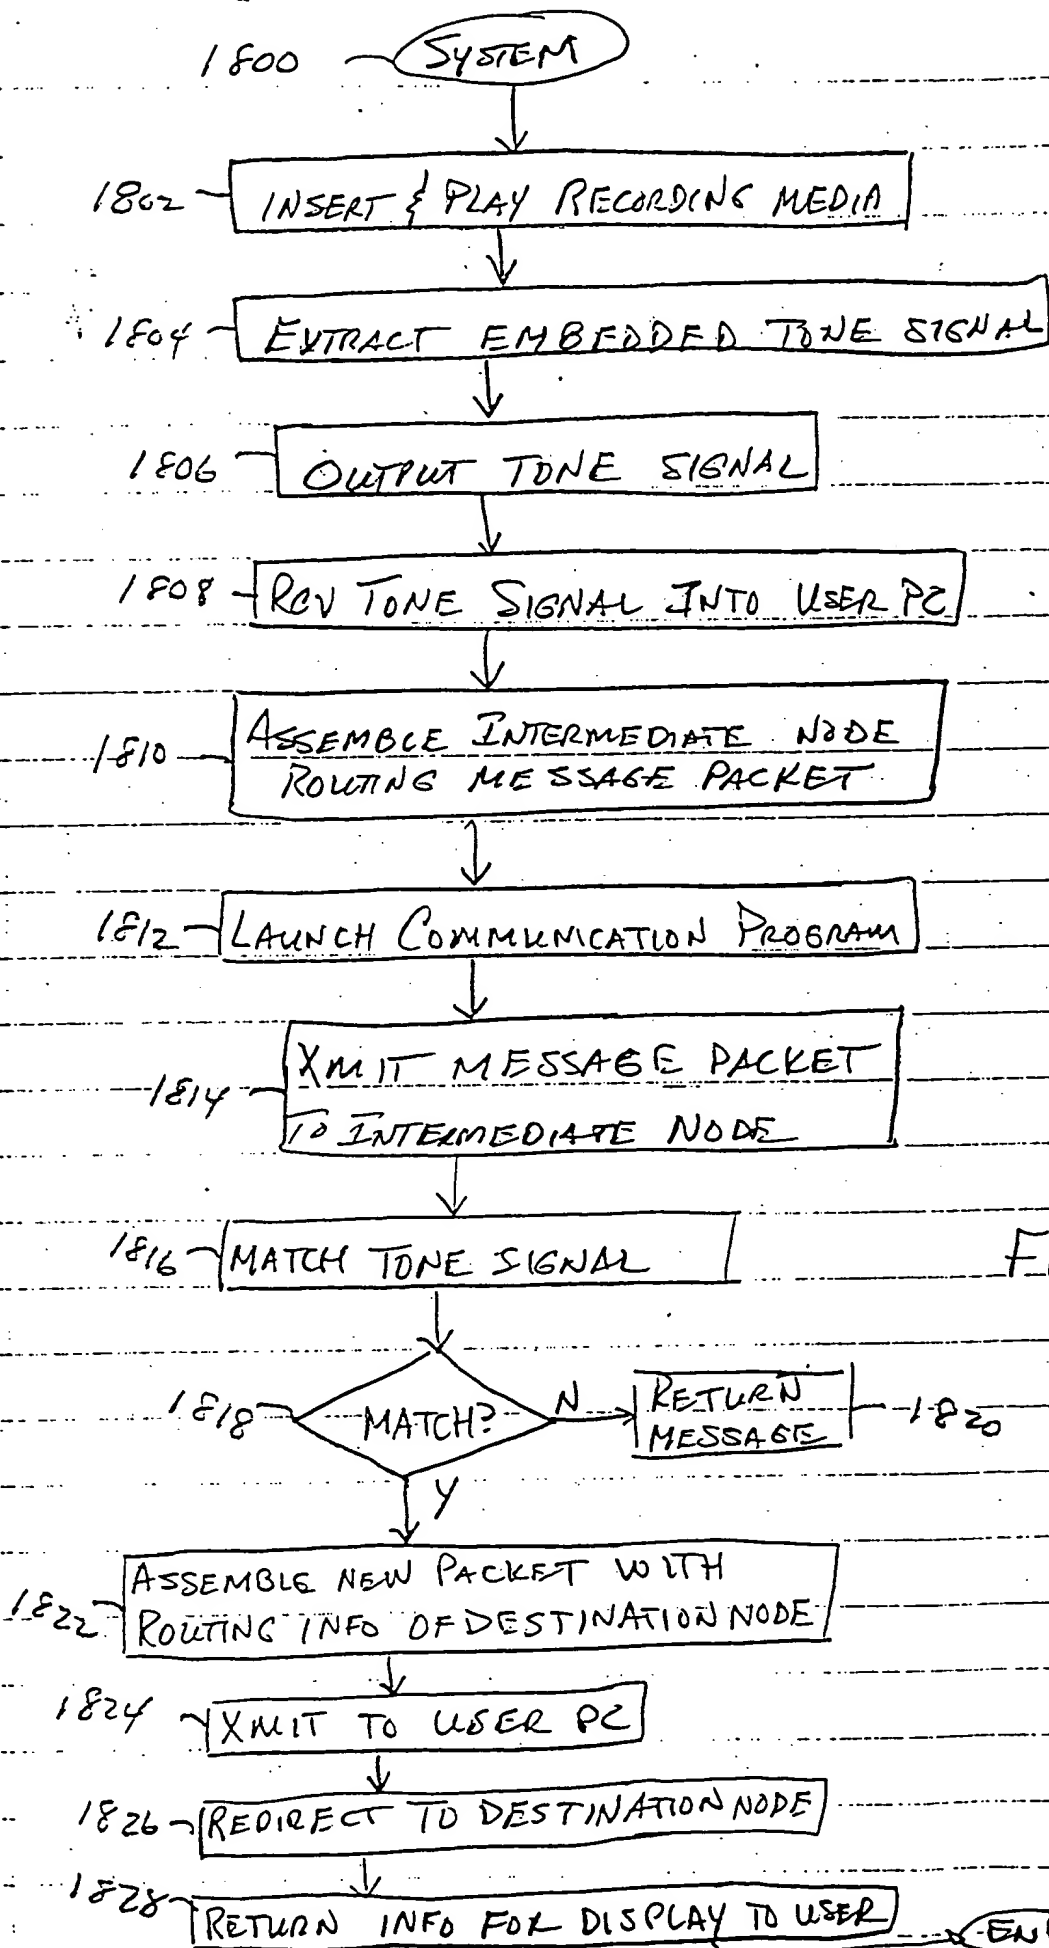 1800 SYSTEM
1802 INSERT & PLAY RECORDING MEDIA
1804 EXTRACT EMBEDDED TONE SIGNAL
1806 OUTPUT TONE SIGNAL
1808 RCV TONE SIGNAL INTO USER PC
1810 ASSEMBLE INTERMEDIATE NODE
ROUTING MESSAGE PACKET
1812 LAUNCH COMMUNICATION PROGRAM
1814 XMIT MESSAGE PACKET
TO INTERMEDIATE NODE
1816 MATCH TONE SIGNAL
F
1818 MATCH? N RETURN MESSAGE 1820
Y
1822 ASSEMBLE NEW PACKET WITH
ROUTING INFO OF DESTINATION NODE
1824 XMIT TO USER PC
1826 REDIRECT TO DESTINATION NODE
1828 RETURN INFO FOR DISPLAY TO USER
EN